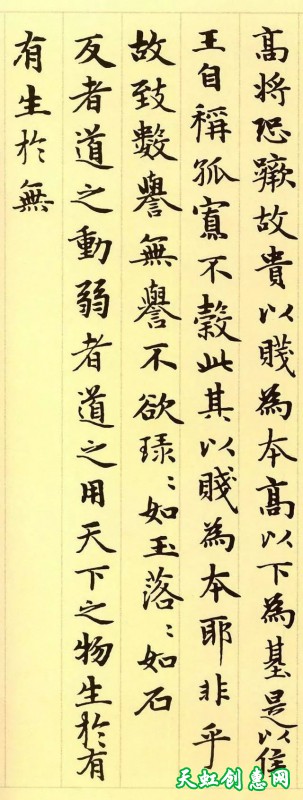 高将恐蹶故貴以賤為本高以下為基是以侯
王自稱孤寡不榖此其以賤為本耶非乎
故致數譽無譽不欲琭〻如玉落〻如石
反者道之動弱者道之用天下之物生於有
有生於無
天虹创惠网